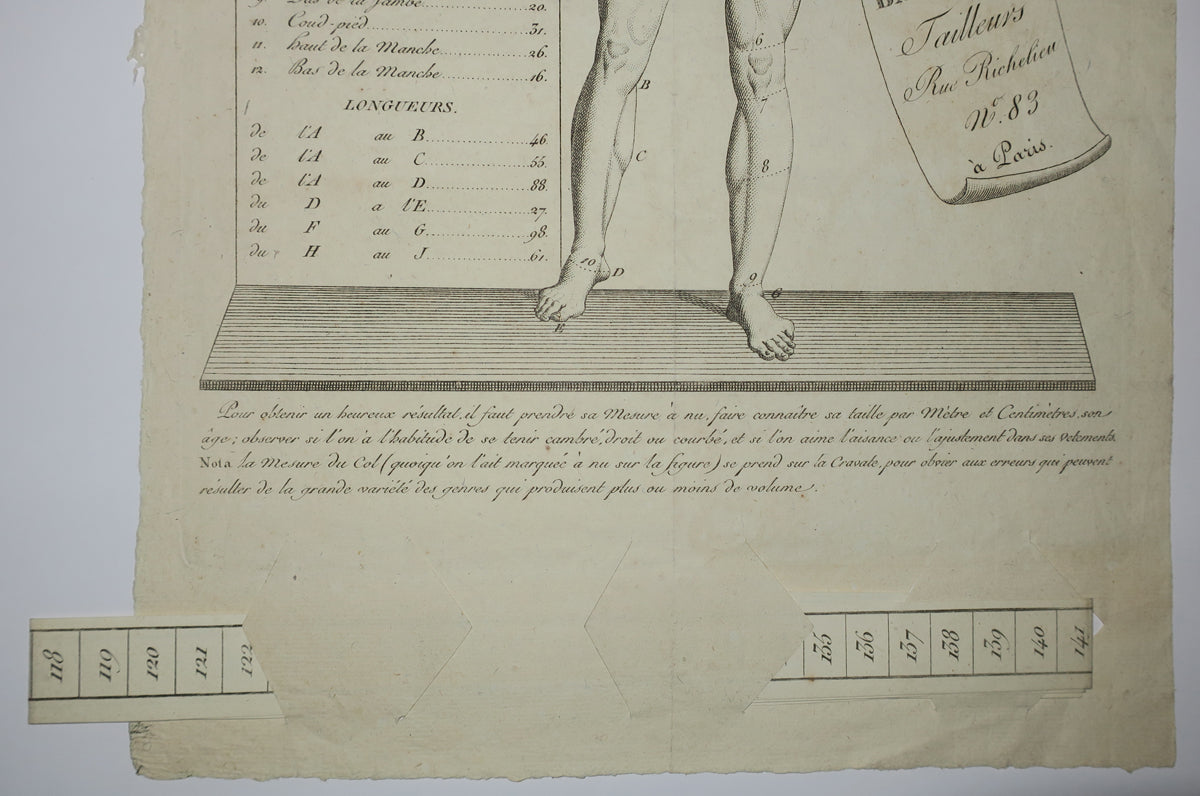 9. Bas de la Jambe 20.
10. Coud-pied 31.
11. Haut de la Manche 26.
12. Bas de la Manche 16.
LONGUEURS.
de l'A au B 46.
de l'A au C 55.
de l'A au D 88.
du D a l'E 27.
du F au G 98.
du H au J 61.
6
B
7
C
8
10
D
9
G
E
Tailleurs
Rue Richelieu
N.º 83
à Paris.
Pour obtenir un heureux résultat, il faut prendre sa Mesure à nu, faire connaître sa taille par Mètre et Centimètres, son
âge; observer si l'on à l'habitude de se tenir cambré, droit ou courbé, et si l'on aime l'aisance ou l'ajustement dans ses Vetements.
Nota la Mesure du Col (quoiqu'on l'ait marquée à nu sur la figure) se prend sur la Cravate, pour obvier aux erreurs qui peuvent
résulter de la grande variété des genres qui produisent plus ou moins de volume.
118 119 120 121 122
135 136 137 138 139 140 141